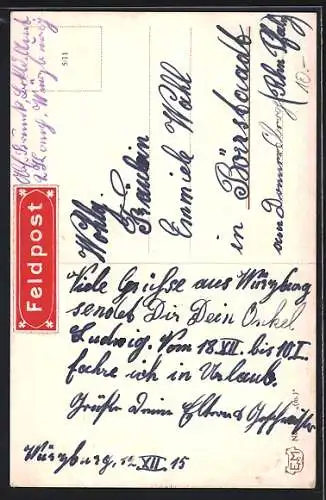 Feldpost
511
10.-
Wohlg
Fräulein
Emmiele Wohl
in Börrstadt
am Donnersberg (Rhn Pfalz
Viele Grüsse aus Würzburg
sendet Dir Dein Onkel
Ludwig. Vom 18.XII. bis 10.I
fahre ich in Urlaub.
Grüsse Deine Eltern & Geschwister
Würzburg, 12.XII.15
EM